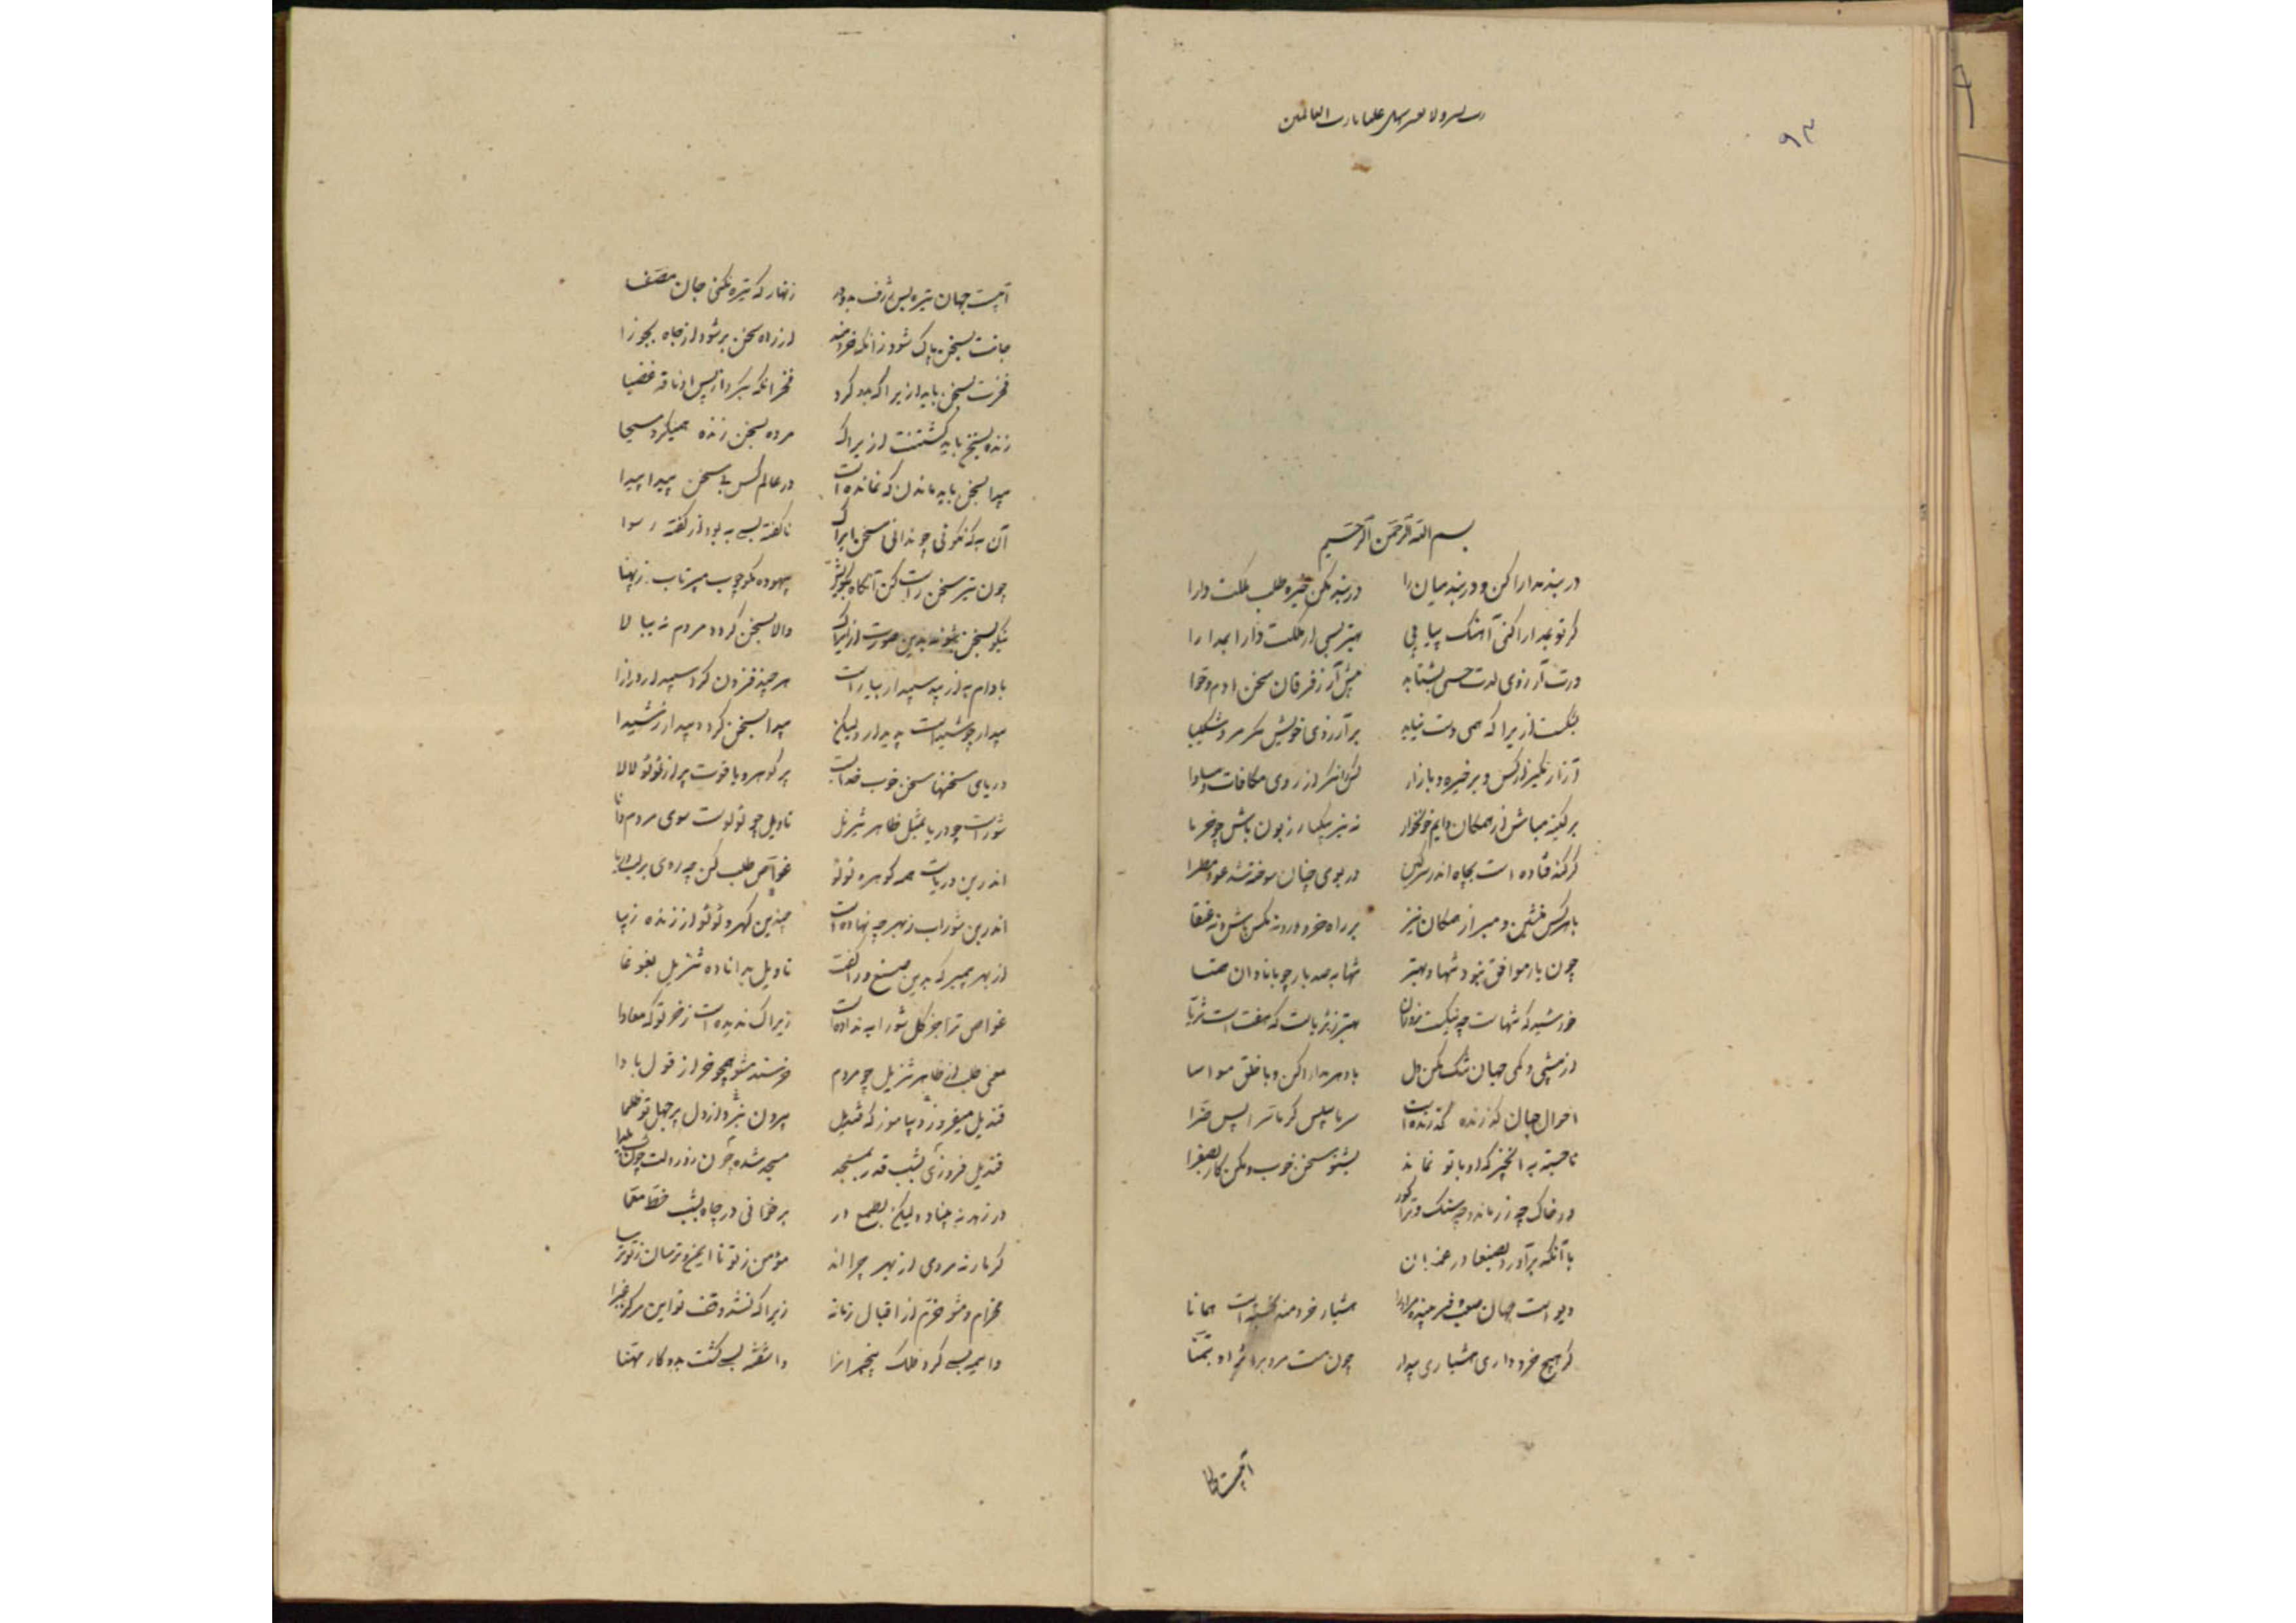 رب یسر ولا تعسر سهل علینا یا رب العالمین
۹۳
بسم الله الرحمن الرحیم
در بند مدارا کن و در بند میان را در بند مکن خیره طلب ملکت دارا
گر تو بمدارا کنی آهنگ بیابی بهتر بسی از ملکت دارا بمدارا
ورت آرزوی لذت حسی بشتابد پیش آر ز فرقان سخن آدم و حوا
بشکیب ازیرا که همی دست نیابد بر آرزوی خویش مگر مرد شکیبا
آزار مگیر از کس و بر خیره میازار کس را مگر از روی مکافات مساوا
پر کینه مباش از همگان دایم چون خار نه نیز بیکباره زبون باش چو خرما
کز گند فتاده است بچاه اندر سرگین در بوی چنان سوخته شد عود مطرا
با هر کس منشین و مبر از همگان نیز بر راه خرد رو نه مگس باش و نه عنقا
چون یار موافق نبود تنها بهتر تنها به صد بار چو با نادان همتا
خورشید که تنهاست چه نیکست بزو بهتر ز ثریاست که هفت است ثریا
از بیشی و کمی جهان تنگ مکن دل با دهر مدارا کن و با خلق مواسا
احوال جهان گذرنده گذرنده است سرما سپس گرما سرا پس ضرا
ناجسته به آن چیز که او با تو نماند بشنو سخن خوب و مکن کار بصفرا
در خاک چه زر ماند و چه سنگ و ترا گور
با آنکه برآورد بصنعا در غمدان
دیو است جهان صعب و فریبنده مر او را هشیار خردمند نجسته است همانا
گر هیچ خرد داری هشیاری بیدار چون مست مرو بر اثر او بتمنا
آبیست جهان
آبیست جهان تیره بس ژرف بدو در زنهار که تیره نکنی جان مصفا
جانت بسخن پاک شود زانکه خردمند از راه سخن بر شود از چاه بجوزا
فخرت بسخن باید ازیرا که بدو کرد فخر آنکه بشد از پس او ناقه عضبا
زنده بسخن باید گشتنت ازیراک مرده بسخن زنده همیکرد مسیحا
پیدا بسخن باید ماندن که نمانده است در عالم کس بی سخن پیدا پیدا
آن به که نگوئی چو ندانی سخن ایراک ناگفته بسی به بود از گفته رسوا
چون تیر سخن راست کن آنگاه بگویش بیهوده مگو چوب مپرتاب ز پهنا
نیکو بسخن شو نه بدین صورت ازیراک والا بسخن گردد مردم نه ببالا
بادام به از بید سپیدار ببار است هر چند فزون کرد سپیدار درازا
بیدار چو شیداست بدیدار ولیکن پیدا بسخن گردد بیدار ز شیدا
دریای سخنها سخن خوب خدایست پر گوهر و یاقوت پر از لؤلؤ لالا
شور است چو دریا بمثل ظاهر تنزیل تاویل چو لؤلوست سوی مردم دانا
اندر بن دریاست همه گوهر و لؤلؤ غواص طلب کن چه روی بر لب دریا
اندر بن شوراب ز بهر چه نهاده است چندین گهر و لؤلؤ ارزنده زیبا
از بهر پیمبر که بدین صنع ورا گفت تاویل بدانا ده تنزیل بغوغا
غواص ترا جز گل شورابه نداده است زیراک ندیده است ز خر تو که معادا
معنی طلب از ظاهر تنزیل چو مردم خرسند مشو همچو خر از قول بآوا
قندیل میفروز و بیاموز که قندیل بیرون نبرد از دل پر جهل تو ظلما
قندیل فروزی بشب قدر بمسجد مسجد شده چون روز و دلت چون شب یلدا
در زهد نه بینا و لیکن بطمع در برخوانی در چاه بشب خط معما
گر مار نه مردمی از بهر چرا اند مؤمن ز تو نا ایمن و ترسان ز تو ترسا
مخرام و مشو خرم از اقبال زمانه زیرا که نشد وقف تو این مرکز غبرا
داهیه بسی کرد فلک بیخبر انرا و آشفته بسی گشت بدو کار مهنا